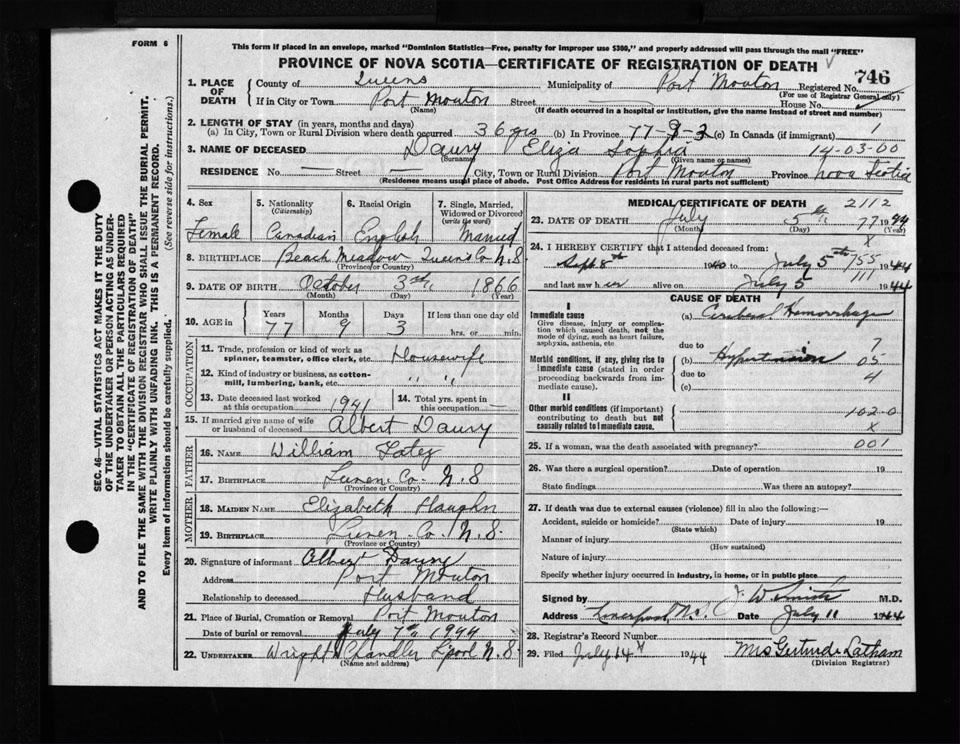 FORM 6
This form if placed in an envelope, marked "Dominion Statistics—Free, penalty for improper use $300," and properly addressed will pass through the mail "FREE"
PROVINCE OF NOVA SCOTIA—CERTIFICATE OF REGISTRATION OF DEATH
746
1. PLACE OF DEATH County of Queens Municipality of Port Mouton Registered No.
(For use of Registrar General only)
If in City or Town Port Mouton Street House No.
(Name) (If death occurred in a hospital or institution, give the name instead of street and number)
2. LENGTH OF STAY (in years, months and days)
(a) In City, Town or Rural Division where death occurred 36 yrs (b) In Province 77-9-3 (c) In Canada (if immigrant) 1
3. NAME OF DECEASED Daury Eliza Sophia 14-03-00
(Surname) (Given name or names)
RESIDENCE No. — Street — City, Town or Rural Division Port Mouton Province Nova Scotia
(Residence means usual place of abode. Post Office Address for residents in rural parts not sufficient)
4. Sex 5. Nationality (Citizenship) 6. Racial Origin 7. Single, Married, Widowed or Divorced (write the word)
Female Canadian English Married
8. BIRTHPLACE Beach Meadow Queens Co N.S
(Province or Country)
9. DATE OF BIRTH October 3rd 1866
(Month) (Day) (Year)
10. AGE in Years Months Days If less than one day old
77 9 3 hrs. or min.
OCCUPATION
11. Trade, profession or kind of work as spinner, teamster, office clerk, etc. Housewife
12. Kind of industry or business, as cotton-mill, lumbering, bank, etc. " "
13. Date deceased last worked at this occupation 1941 14. Total yrs. spent in this occupation —
15. If married give name of wife or husband of deceased Albert Daury
FATHER
16. NAME William
17. BIRTHPLACE Lunen. Co. N.S
(Province or Country)
MOTHER
18. MAIDEN NAME Elizabeth Haughn
19. BIRTHPLACE Lunen. Co. N.S.
(Province or Country)
20. Signature of informant Albert Daury
Address Port Mouton
Relationship to deceased Husband
21. Place of Burial, Cremation or Removal Port Mouton
Date of burial or removal July 7th 1944
22. UNDERTAKER Wright Chandler Lpool N.S
(Name and address)
MEDICAL CERTIFICATE OF DEATH 2112
23. DATE OF DEATH July 5th 77 1944
(Month) (Day) (Year)
X
24. I HEREBY CERTIFY that I attended deceased from:
Sept 8th 1940 to July 5th 1944
155
111
and last saw her alive on July 5 1944
CAUSE OF DEATH
I
Immediate cause (a) Cerebral Hemorrhage
Give disease, injury or complication which caused death, not the mode of dying, such as heart failure, asphyxia, asthenia, etc.
due to 7
Morbid conditions, if any, giving rise to immediate cause (stated in order proceeding backwards from immediate cause). (b) Hypertension 05
due to 4
(c)
II
Other morbid conditions (if important) contributing to death but not causally related to immediate cause. 102-0
X
25. If a woman, was the death associated with pregnancy? 001
26. Was there a surgical operation? Date of operation 19
State findings Was there an autopsy?
27. If death was due to external causes (violence) fill in also the following:—
Accident, suicide or homicide? Date of injury 19
(State which)
Manner of injury
(How sustained)
Nature of injury
Specify whether injury occurred in industry, in home, or in public place
Signed by J. W. Smith M.D.
Address Liverpool N.S. Date July 11 1944
28. Registrar's Record Number
29. Filed July 14 1944 Mrs Gertrude Latham
(Division Registrar)
SEC. 46—VITAL STATISTICS ACT MAKES IT THE DUTY
OF THE UNDERTAKER OR PERSON ACTING AS UNDERTAKER TO OBTAIN ALL THE PARTICULARS REQUIRED
IN THE "CERTIFICATE OF REGISTRATION OF DEATH"
AND TO FILE THE SAME WITH THE DIVISION REGISTRAR WHO SHALL ISSUE THE BURIAL PERMIT.
WRITE PLAINLY WITH UNFADING INK. THIS IS A PERMANENT RECORD.
Every item of information should be carefully supplied. (See reverse side for instructions.)